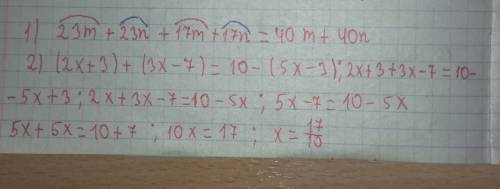 1) 23m + 23n + 17m + 17n = 40m + 40n
2) (2x+3) + (3x-7) = 10 - (5x-3); 2x+3+3x-7 = 10-
-5x+3; 2x+3x-7 = 10-5x; 5x-7 = 10-5x
5x+5x = 10+7; 10x = 17; x = 17/10